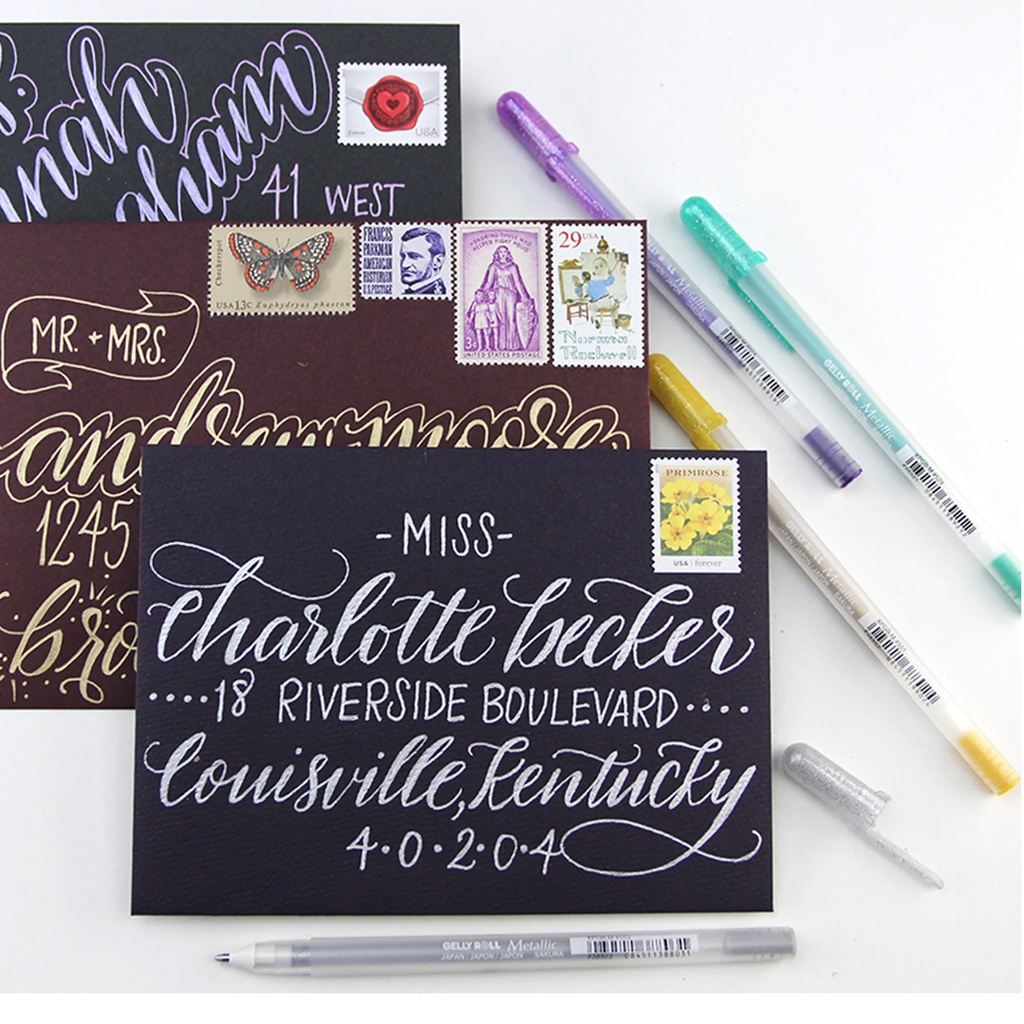 nnah
aham
41 WEST
USA
MR. + MRS.
andrew moore
1245
bro
Checkerspot
USA 13c Euphydryas phaeton
FRANCIS
PARKMAN
AMERICAN
HISTORIAN
U.S. POSTAGE
HONORING THOSE WHO
HELPED FIGHT POLIO
3¢
UNITED STATES POSTAGE
29 USA
Norman
Rockwell
PRIMROSE
USA | forever
- MISS -
Charlotte becker
....18 RIVERSIDE BOULEVARD....
Louisville, Kentucky
4.0.2.0.4
GELLY ROLL Metallic
GELLY ROLL Metallic
GELLY ROLL Metallic
GELLY ROLL Metallic
JAPAN / JAPON / JAPON SAKURA